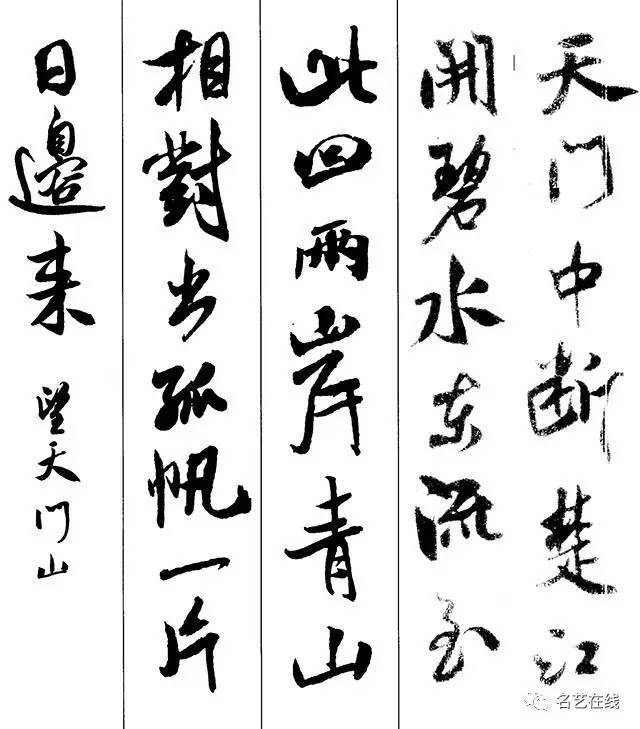 天门中断楚江
開碧水东流至
此回兩岸青山
相對出孤帆一片
日邊来
望天门山
名艺在线